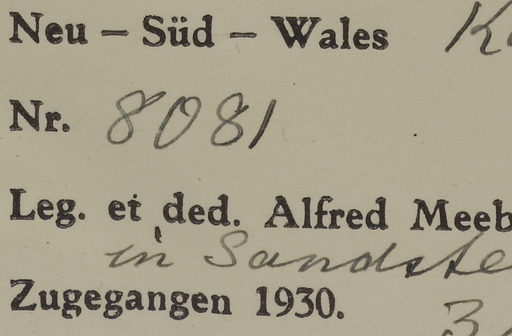 Neu – Süd – Wales
Nr. 8081
Leg. et ded. Alfred Meeb
in Sandste
Zugegangen 1930.